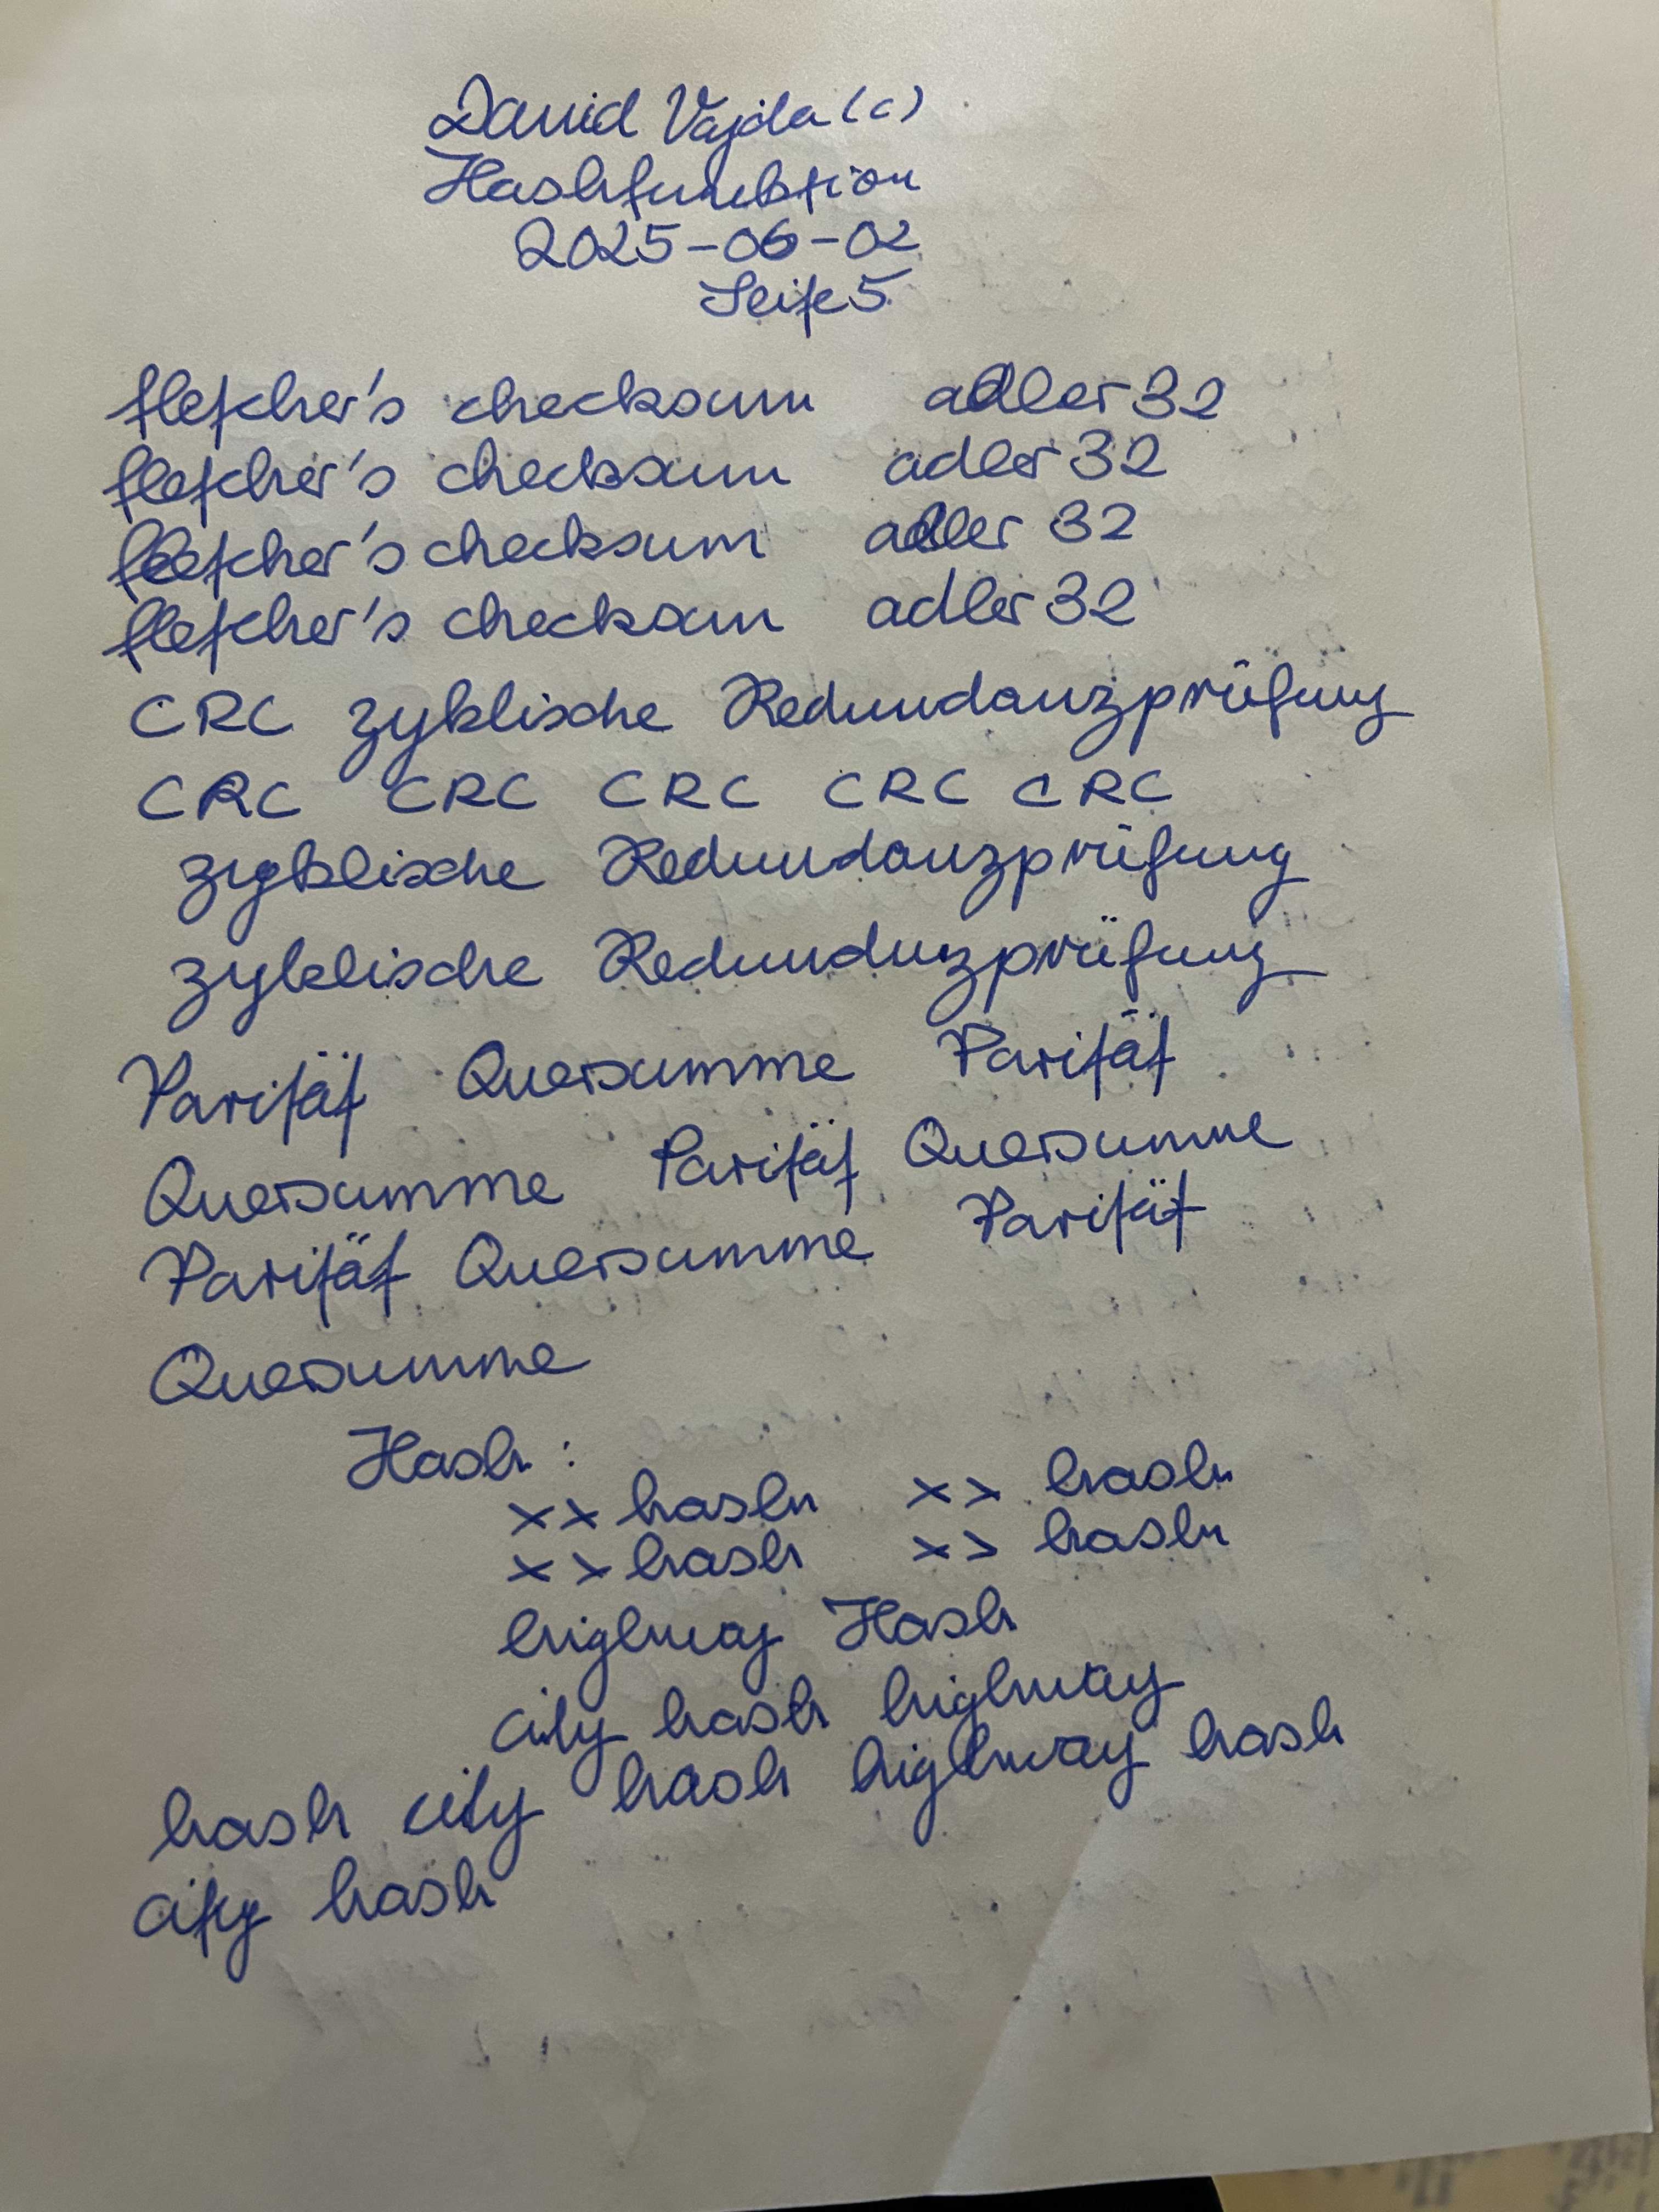 David Vajda (c)
Hashfunktion
2025-06-02
Seite 5
fletcher's checksum adler 32
fletcher's checksum adler 32
fletcher's checksum adler 32
fletcher's checksum adler 32
CRC zyklische Redundanzprüfung
CRC CRC CRC CRC CRC
zyklische Redundanzprüfung
zyklische Redundanzprüfung
Parität Quersumme Parität
Quersumme Parität Quersumme
Parität Quersumme Parität
Quersumme
Hash:
xx hash xx hash
xx hash xx hash
highway Hash
city hash highway
hash city hash highway hash
city hash